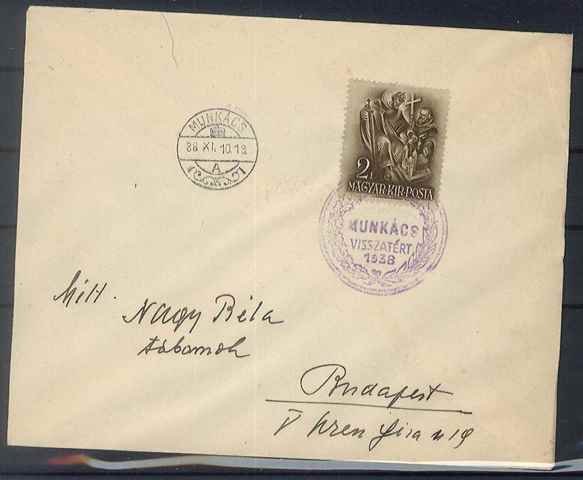 MUNKÁCS
38 XI. 10. 18
A
2f
MAGYAR·KIR·POSTA
MUNKÁCS
VISSZATÉRT
1938
Mélt.
Nagy Béla
Budapest
V
19